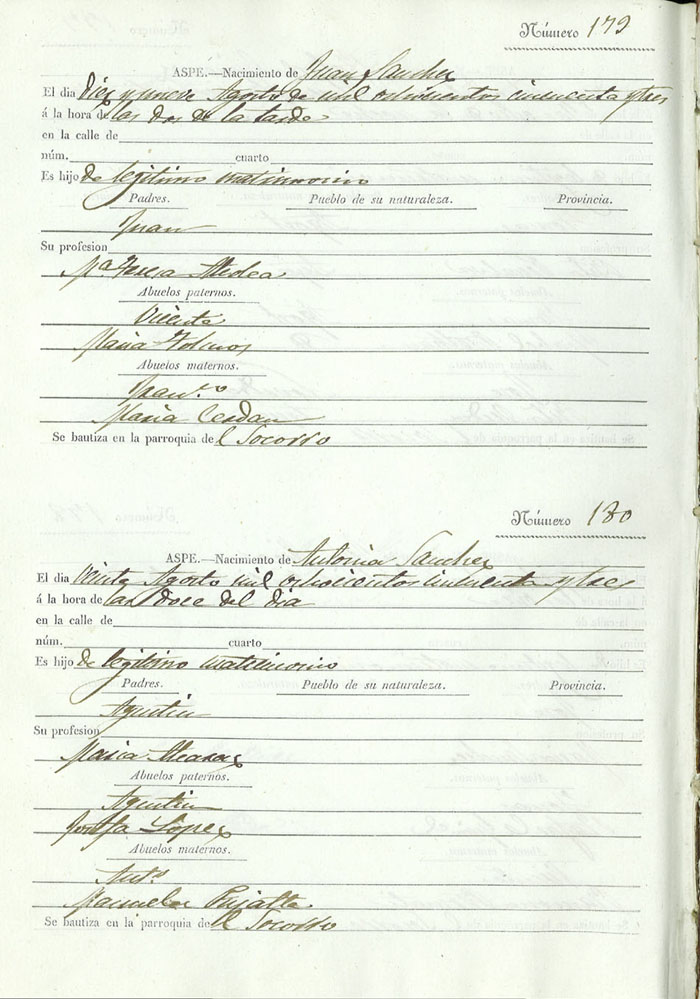 Número 179
ASPE.—Nacimiento de Juan Sanchez
El dia Diez y nueve Agosto de mil ochocientos cincuenta y tres
á la hora de las dos de la tarde
en la calle de
núm. cuarto
Es hijo de legitimo matrimonio
Padres. Pueblo de su naturaleza. Provincia.
Juan
Su profesion
Mª Teresa
Abuelos paternos.
Vicente
Maria
Abuelos maternos.
Franco
Maria Cerdan
Se bautiza en la parroquia del Socorro
Número 180
ASPE.—Nacimiento de Antonia Sanchez
El dia Veinte Agosto mil ochocientos cincuenta y tres
á la hora de las doce del dia
en la calle de
núm. cuarto
Es hijo de legitimo matrimonio
Padres. Pueblo de su naturaleza. Provincia.
Agustin
Su profesion
Maria Alcaraz
Abuelos paternos.
Agustin
Josefa Lopez
Abuelos maternos.
Anto
Manuela Pujalte
Se bautiza en la parroquia de el Socorro